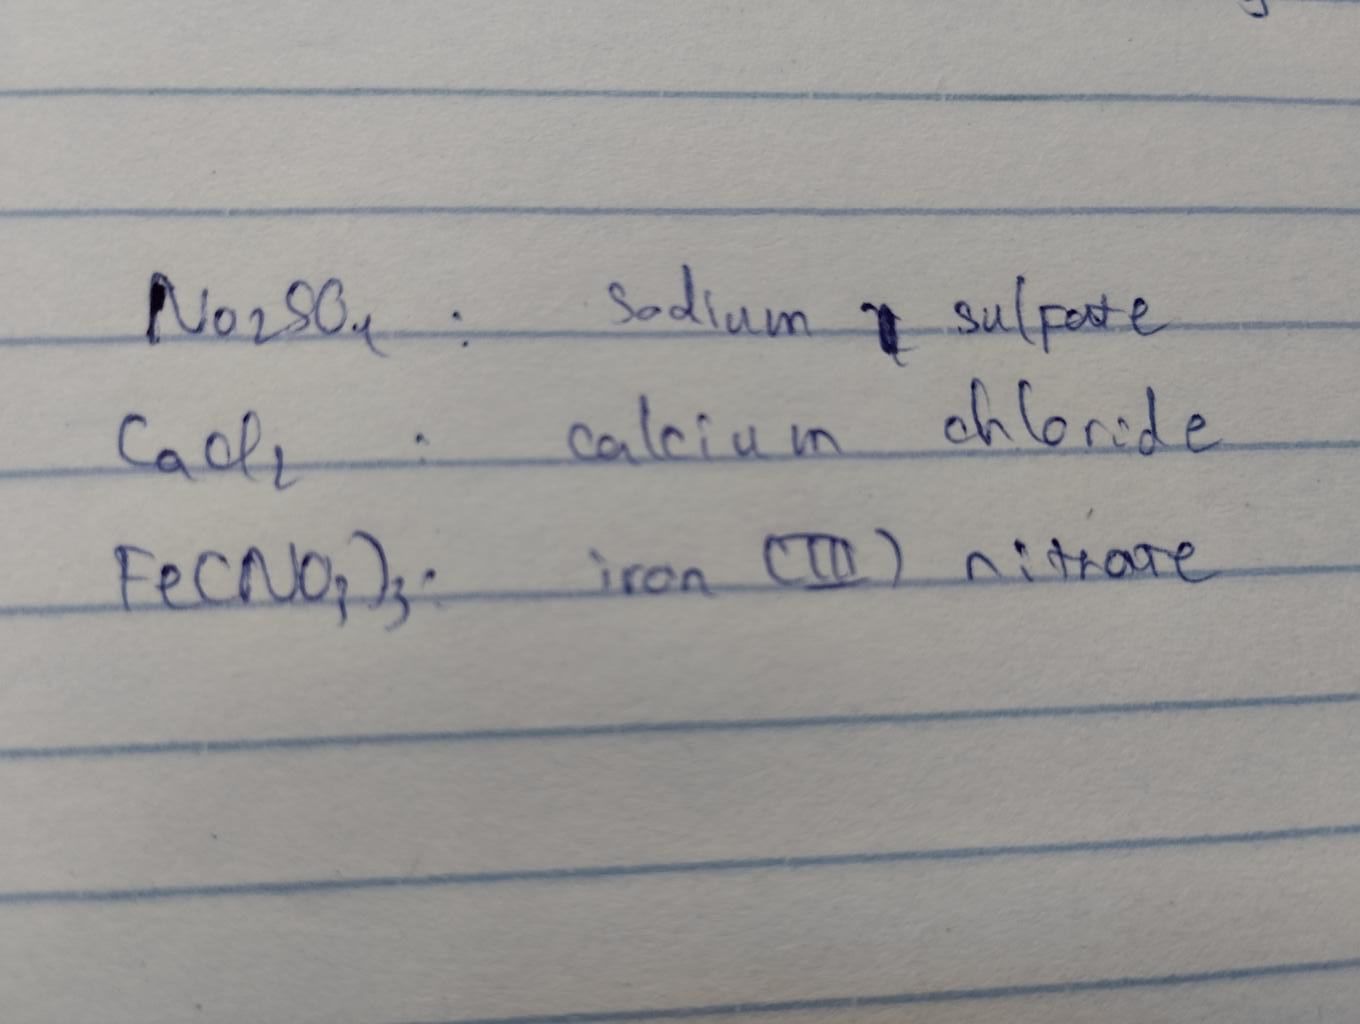 Na2SO4 : Sodium sulpate
CaCl2 : calcium chloride
Fe(NO3)3: iron (III) nitrate